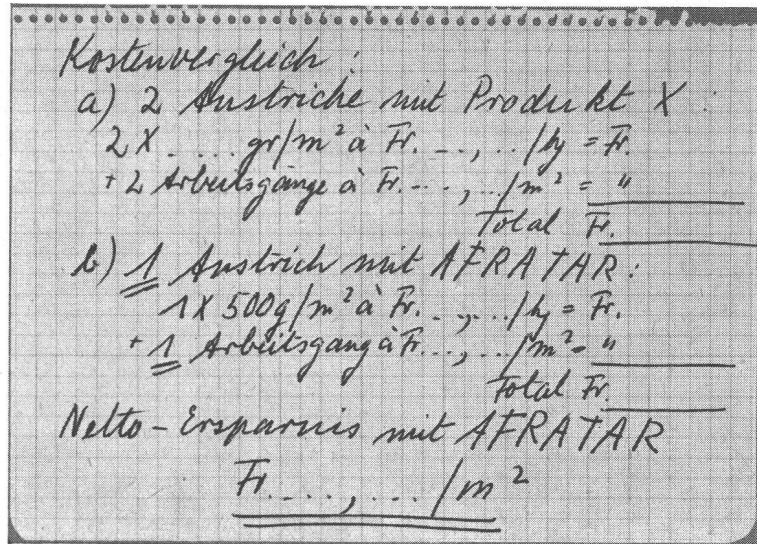 Kostenvergleich:
a) 2 Anstriche mit Produkt X:
2 X .... gr/m² à Fr. ..., ../kg = Fr.
+ 2 Arbeitsgänge à Fr. ..., .../m² = "
Total Fr.
b) 1 Anstrich mit AFRATAR:
1 X 500g/m² à Fr. ..., .../kg = Fr.
+ 1 Arbeitsgang à Fr. ..., .../m² = "
Total Fr.
Netto-Ersparnis mit AFRATAR
Fr. ...., .... /m²